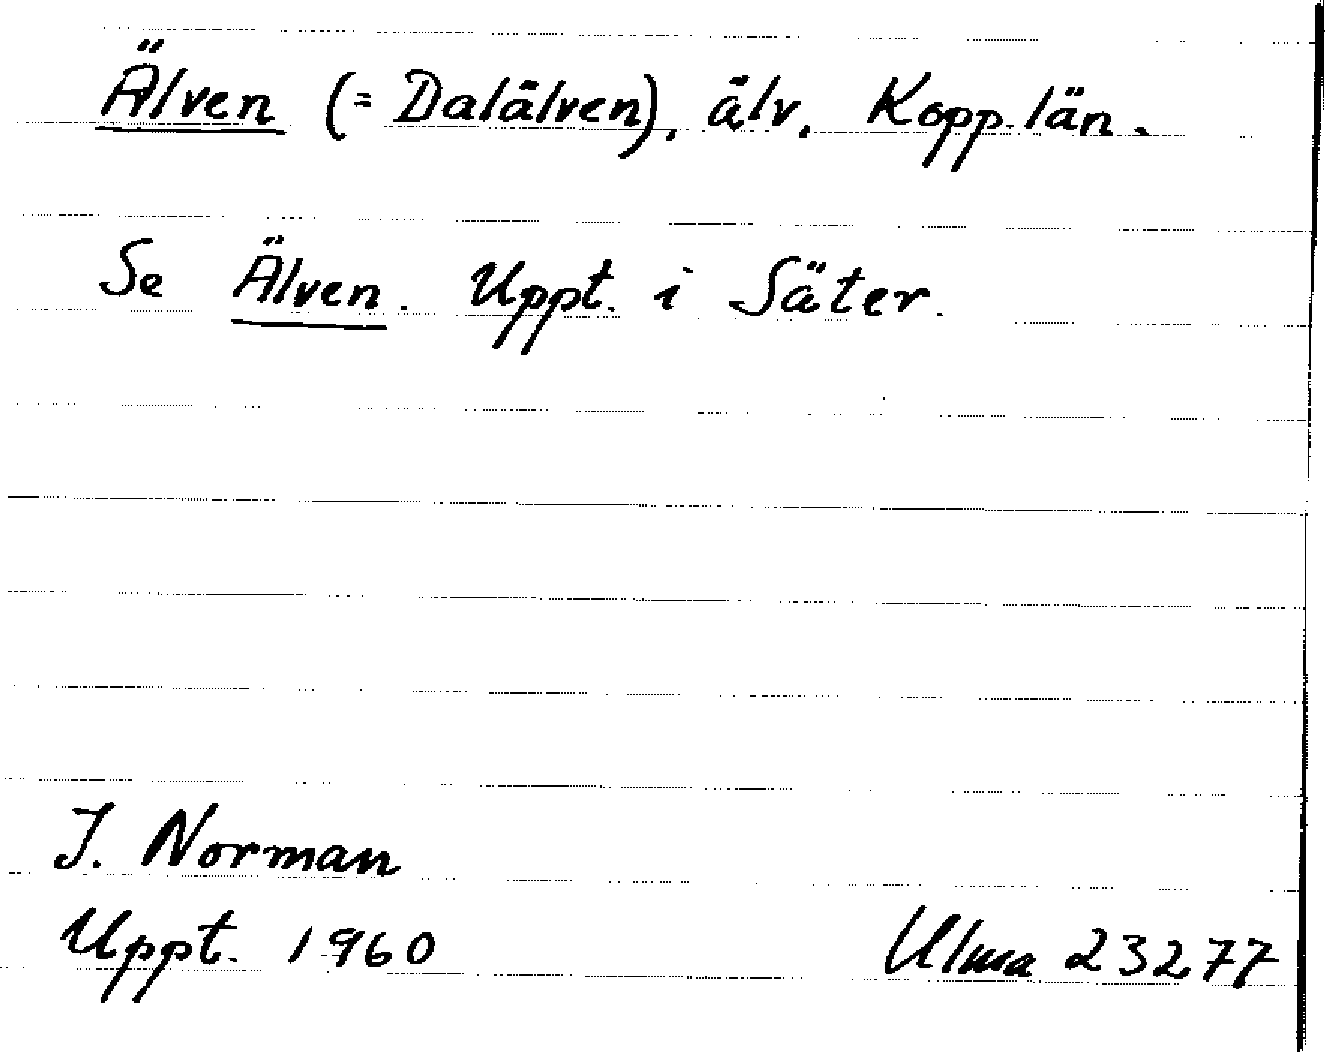 Älven (= Dalälven), älv, Kopp. län.
Se Älven. Uppt. i Säter.
I. Norman
Uppt. 1960
Ulma 23277